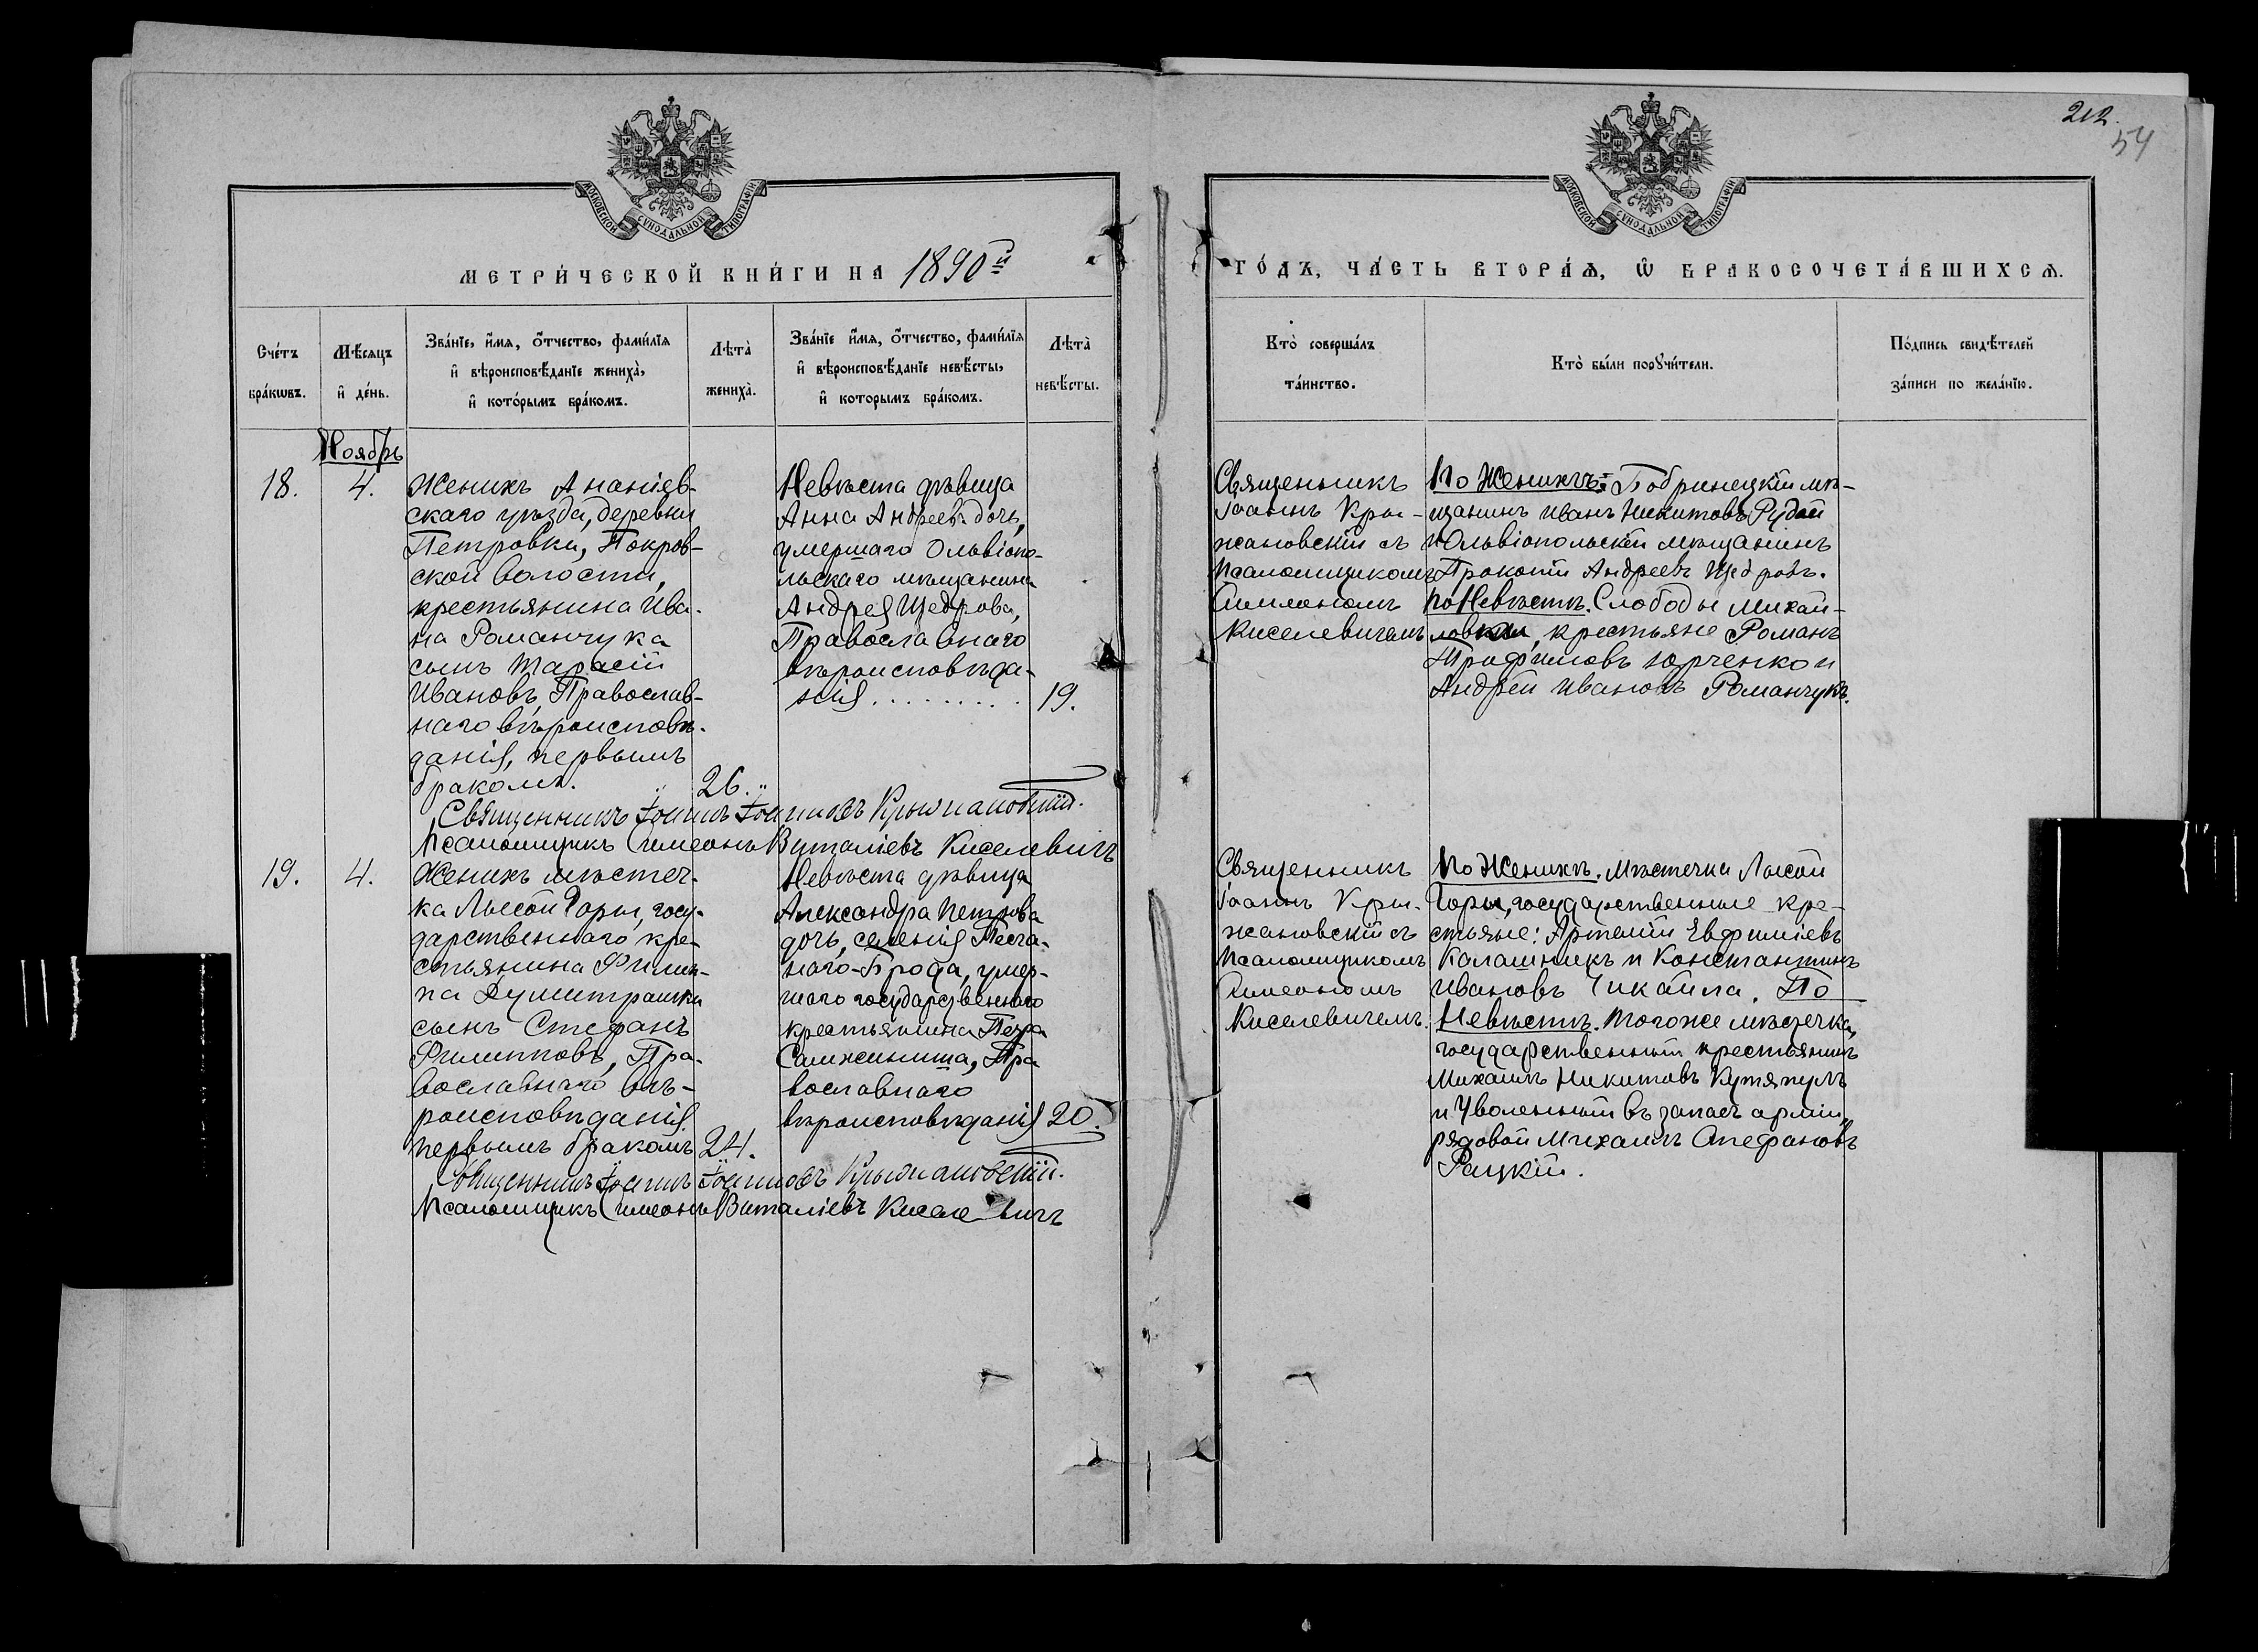 212.
54
МОСКОВСКОЙ СУНОДАЛЬНОЙ ТИПОГРАФІИ
МОСКОВСКОЙ СУНОДАЛЬНОЙ ТИПОГРАФІИ
МЕТРИ́ЧЕСКОЙ КНИ́ГИ НА 1890й
ГО́ДЪ, ЧА́СТЬ ВТОРА́Ѧ, Ѡ҆ БРАКОСОЧЕТА́ВШИХСѦ.
Сче́тъ
бра́кѡвъ.
Мѣ́сяцъ
и҆ де́нь.
Зва́нїе, и҆́мѧ, ѻ҆́тчество, фами́лїѧ
и҆ вѣроисповѣ́данїе жениха̀,
и҆ кото́рымъ бра́комъ.
Лѣта̀
жениха̀.
Зва́нїе и҆́мѧ, ѻ҆́тчество, фами́лїѧ
и҆ вѣроисповѣ́данїе невѣ́сты,
и҆ которымъ бра́комъ.
Лѣта̀
невѣ́сты.
Кто̀ соверша́лъ
та́инство.
Кто̀ бы́ли порꙋчи́тели.
По́дпись свидѣ́телей
за́писи по жела́нїю.
Ноябрь
18.
4.
Женихъ Ананіев-
скаго уѣзда, деревни
Петровки, Покров-
ской волости,
крестьянина Ива-
на Романчука
сынъ Тарасій
Ивановъ, Православ-
наго вѣроисповѣ-
данія, первымъ
бракомъ.
26.
Невѣста дѣвица
Анна Андреева дочь,
умершаго Ольвіопо-
льскаго мѣщанина
Андрея Щедрова,
Православнаго
вѣроисповѣда-
нія . . . . . . . . .
19.
Священникъ
Іоаннъ Кры-
жановскій съ
Псаломщикомъ
Симеономъ
Киселевичемъ
По Женихѣ: Бобринецкій мѣ-
щанинъ Иванъ Никитовъ Рудой
и Ольвіопольскій мѣщанинъ
Прокопій Андреевъ Щедровъ.
По Невѣстѣ. Слободы Михай-
ловки, крестьяне Романъ
Трофимовъ Юрченко и
Андрей Ивановъ Романчукъ.
Священникъ Іоаннъ Іоанновъ Крыжановскій.
Псаломщикъ Симеонъ Виталіевъ Киселевичъ
19.
4.
Женихъ мѣстеч-
ка Лысой Горы, госу-
дарственнаго кре-
стьянина Филип-
па Думитрашки
сынъ Стефанъ
Филипповъ, Пра-
вославнаго вѣ-
роисповѣданія
первымъ бракомъ
24.
Невѣста дѣвица
Александра Петрова
дочь, селенія Песча-
наго-Брода, умер-
шаго государственнаго
крестьянина Петра
Пра
вославнаго
вѣроисповѣданія
20.
Священникъ
Іоаннъ Кры-
жановскій съ
Псаломщикомъ
Симеономъ
Киселевичемъ.
По Женихѣ. Мѣстечка Лысой
Горы, государственные кре-
стьяне: Артемій Евфиміевъ
Калашникъ и Константинъ
Ивановъ Чикайла. По
Невѣстѣ. Тогоже мѣстечка,
государственный крестьянинъ
Михаилъ Никитовъ
и Уволенный въ запасъ арміи,
рядовой Михаилъ Стефановъ
Рацкій.
Священникъ Іоаннъ Іоанновъ Крыжановскій.
Псаломщикъ Симеонъ Виталіевъ Киселевичъ